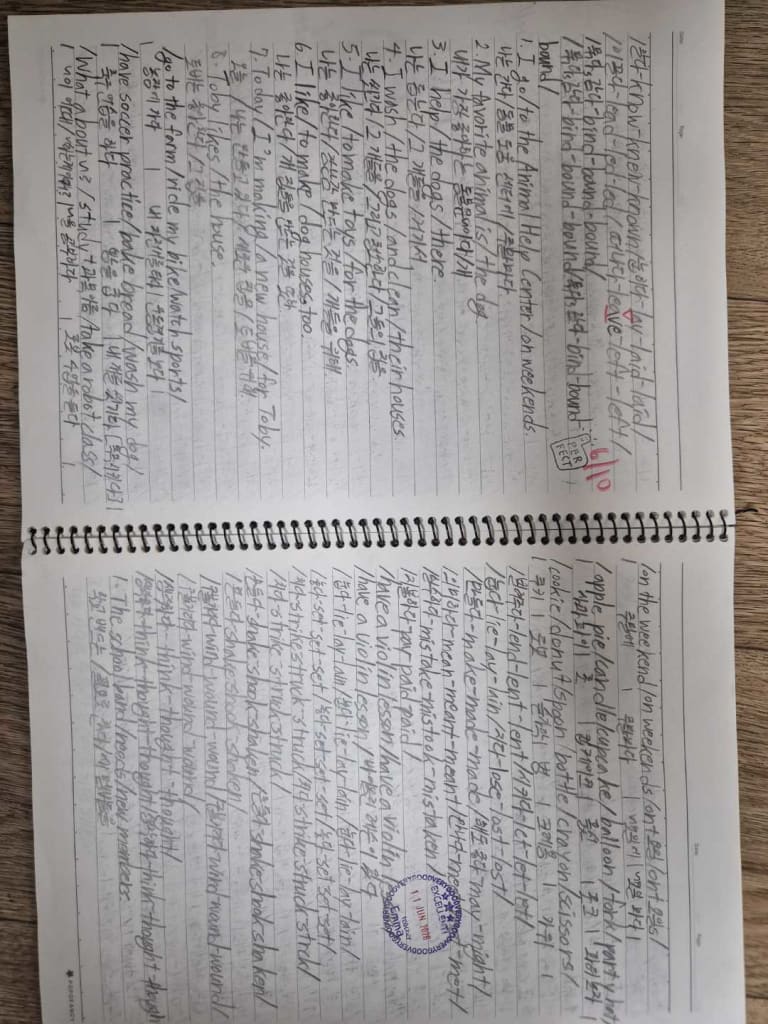 /알다-know-knew-known/놓다-lay-laid-laid/
/이끌다-lead-led-led/떠나다-leave-left-left/
/묶다, 감다-bind-bound-bound/
/묶다, 감다-bind-bound-bound/묶다, 감다-bind-bound-
bound/
6/10
PER
FECT
1. I go/to the Animal Help Center/on weekends.
나는 간다/동물 도움 센터에/주말마다
2. My favorite animal is/the dog.
내가 가장 좋아하는 동물은/개
3. I help/the dogs/there.
나는 돕는다/그 개들을/거기서
4. I wash/the dogs/and clean/their houses.
나는 씻긴다/그 개들을/그리고 청소한다/그들의 집을
5. I like/to make toys/for the dogs
나는 좋아한다/장난감 만드는 것을/개들을 위해
6. I like/to make/dog houses, too.
나는 좋아한다/개 집들을 만드는 것을 또한
7. Today/I'm making/a new house/for Toby.
오늘/나는 만들고 있다/새로운 집을/토비를 위해
8. Toby likes/the house.
토비는 좋아한다/그 집을
/go to the farm/ride my bike/watch sports/
농장에 가다 | 내 자전거를 타다 | 스포츠를 보다 |
/have soccer practice/bake bread/wash my dog/
축구 연습을 하다 | 빵을 굽다 | 내 개를 씻기다
/What about u?/study/take a robot class/
| 너는 어때/ | 로봇 수업을 듣다 |
/on the weekend/on weekends/on/on/
주말에 | 주말마다 | 요일에 | 요일마다 |
/apple pie/candle/cupcake/balloon/fork/party hat
사과파이 | 초 | 컵케이크 | 풍선 | 포크 | 파티모자 |
/cookie/donut/spoon/bottle/crayon/scissors/
| 쿠키 | 도넛 | 숟가락 | 병 | 크레용 | 가위 |
/빌려주다-lend-lent-lent/시키다-let-let-let/
/눕다-lie-lay-lain/잃다-lose-lost-lost/
/만들다-make-made-made/해도 좋다-may-might/
/의미하다-mean-meant-meant/만나다-meet-met-met/
/실수하다-mistake-mistook-mistaken/
지불하다-pay-paid-paid/
/have a violin lesson/have a violin
/have a violin lesson/
눕다-lie-lay-lain/눕다-lie-lay-lain/눕다-lie-lay-lain/
/놓다-set-set-set/놓다-set-set-set/놓다-set-set-set/
/치다-strike-struck-struck/치다-strike-struck-struck/
/치다-strike-struck-struck/
/흔들다-shake-shook-shaken/흔들다-shake-shook-shaken/
/흔들다-shake-shook-shaken/
/감다-wind-wound-wound/감다-wind-wound-wound/
/감다-wind-wound-wound/
/생각하다-think-thought-thought/
생각하다-think-thought-thought/생각하다-think-thought-though
1. The school band/needs/new members.
학교 밴드는/필요로 한다/새 멤버들을
VERYGOOD
EXCELLENT
11 JUN. 2018
Emma
TEACHER